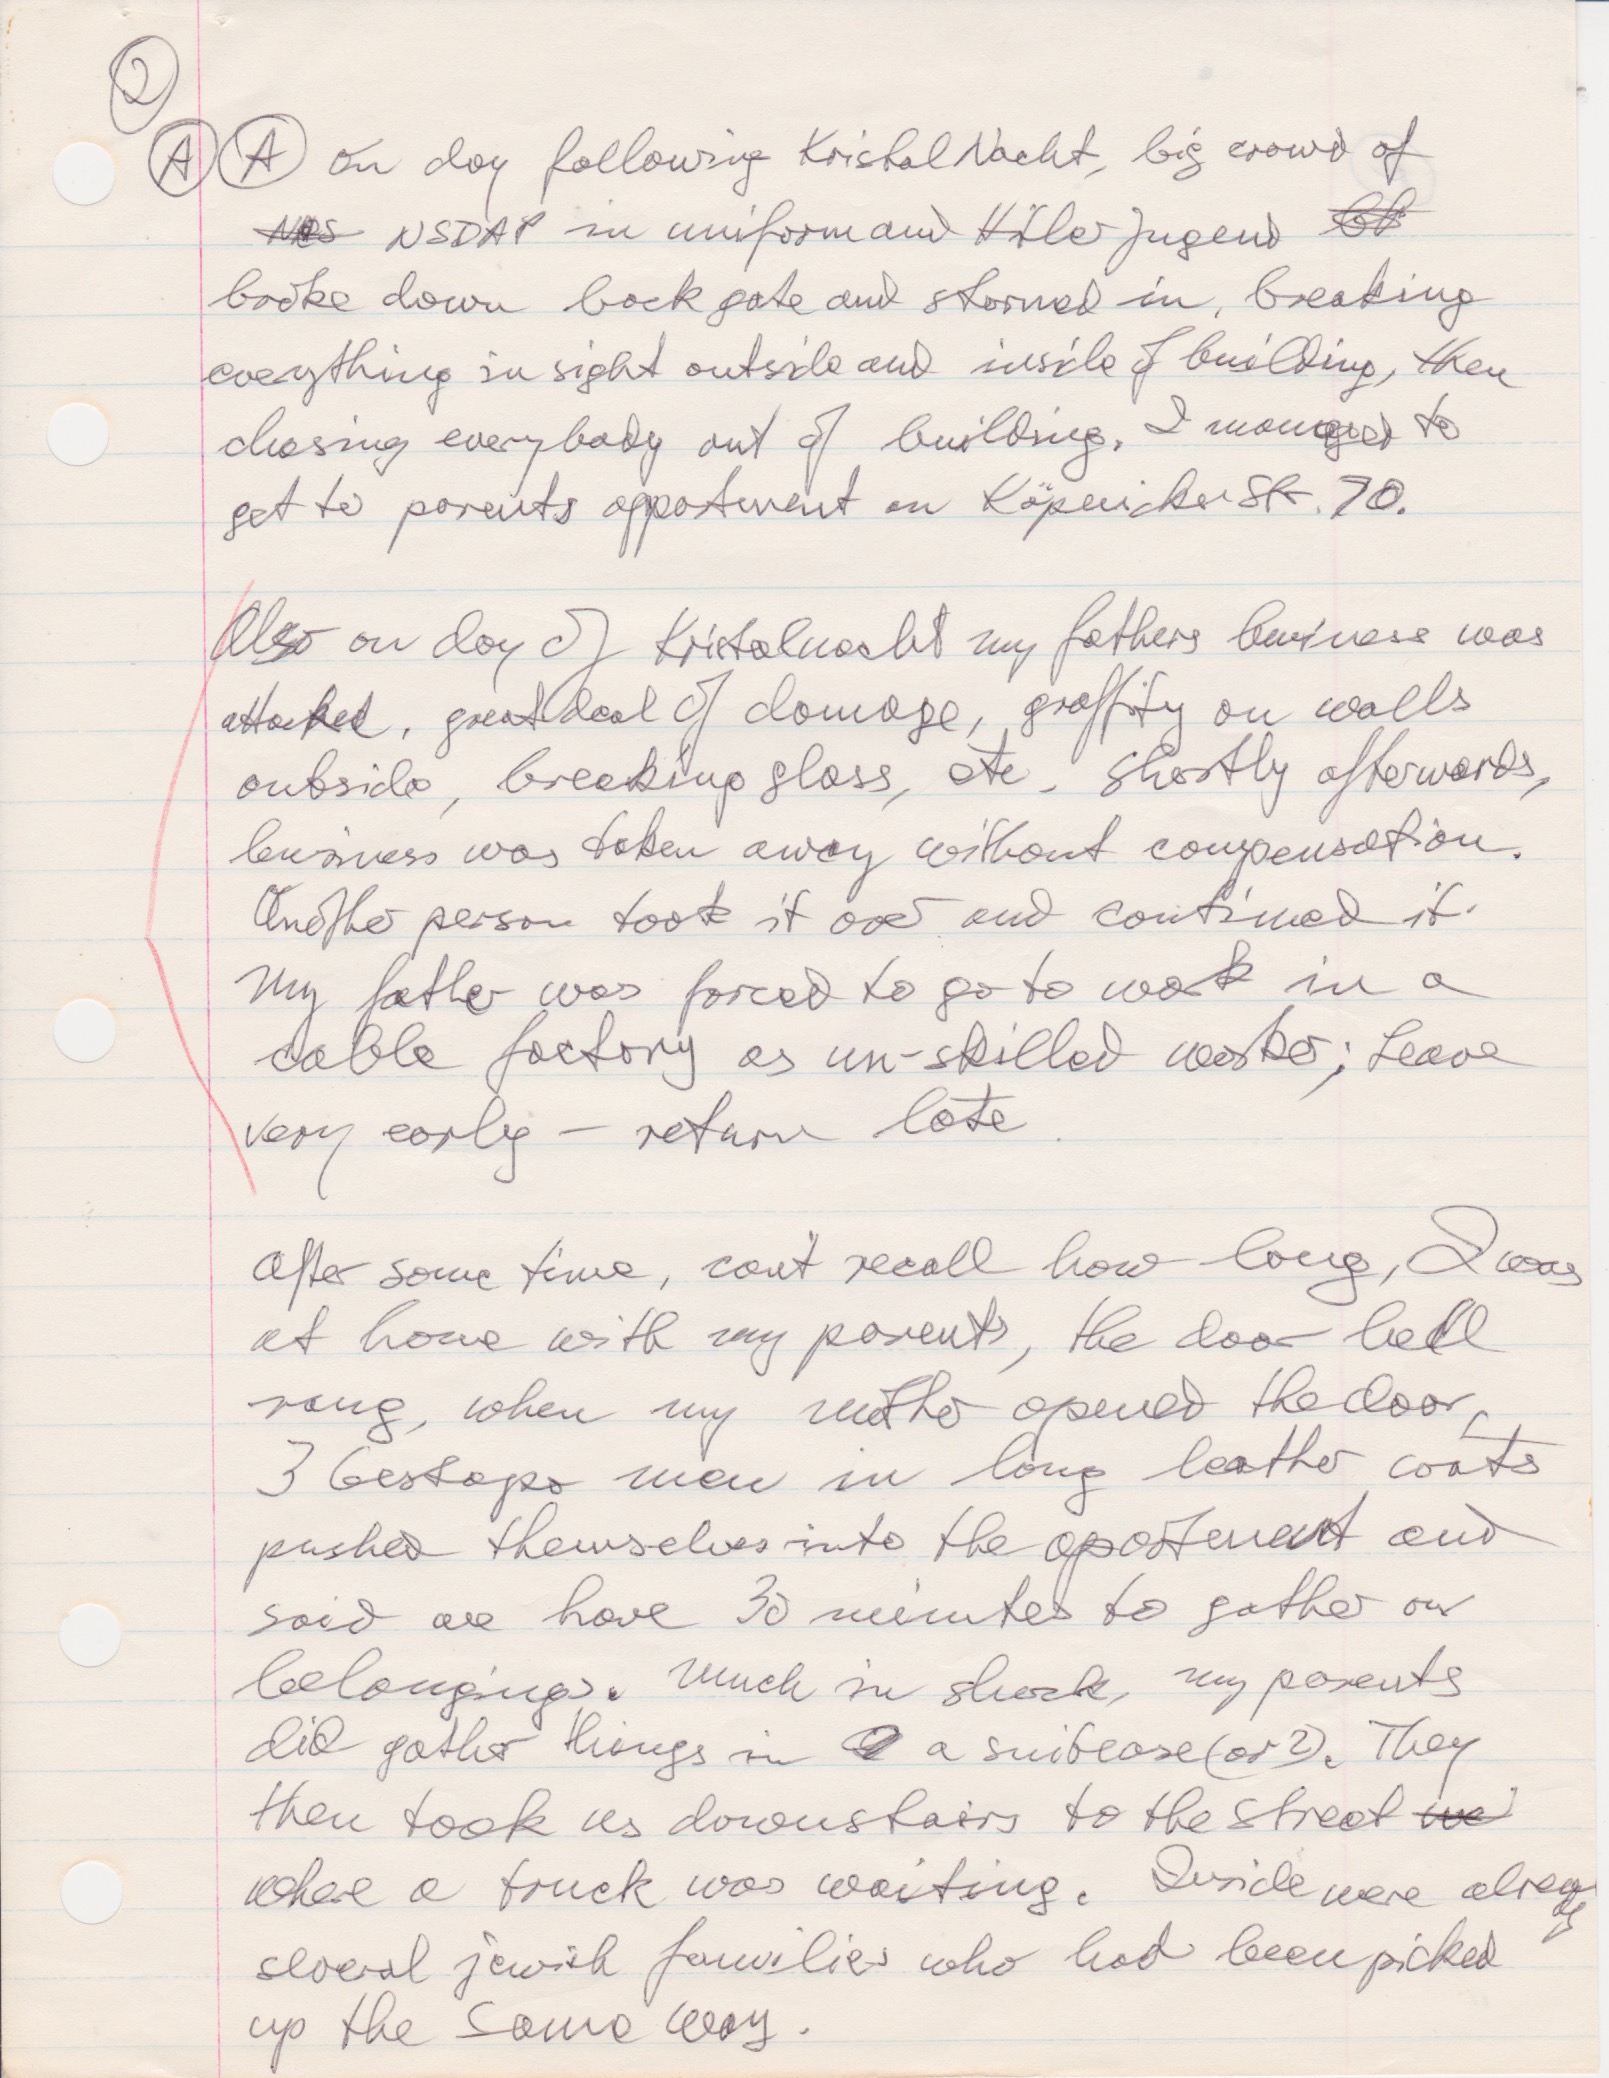 2
A A on day following Kristal Nacht, big crowd of
NSDAP in uniform and Hitler Jugend
broke down back gate and stormed in, breaking
everything in sight outside and inside of building, then
chasing everybody out of building. I managed to
get to parents appartment on Köpenicker Str. 70.
Also on day of Kristalnacht my fathers business was
attacked, great deal of damage, graffity on walls
outside, breaking glass, etc. Shortly afterwards,
business was taken away without compensation.
Another person took it over and continued it.
My father was forced to go to work in a
cable factory as un-skilled worker; Leave
very early - return late
After some time, can't recall how long, I was
at home with my parents, the door bell
rang, when my mother opened the door,
3 Gestapo men in long leather coats
pushed themselves into the apartement and
said we have 30 minutes to gather our
belongings. Much in shock, my parents
did gather things in a suitcase (or 2). They
then took us downstairs to the street
where a truck was waiting. Inside were already
several jewish families who had been picked
up the same way.